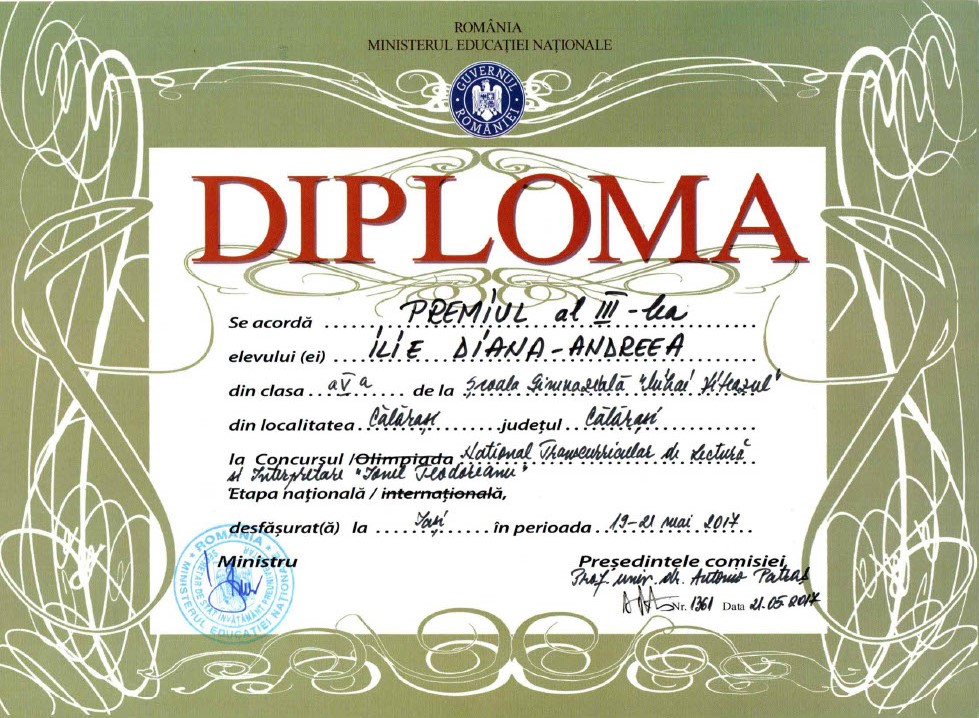 ROMÂNIA
MINISTERUL EDUCAȚIEI NAȚIONALE
GUVERNUL ROMÂNIEI
DIPLOMA
Se acordă ...... PREMIUL al III-lea
elevului (ei) ... ILIE DIANA-ANDREEA
din clasa ... a V a ...... de la Școala Gimnazială "Mihai Viteazul"
din localitatea . Călărași ......... județul ... Călărași
la Concursul /Olimpiada Național Transcurricular de Lectură
și Interpretare "Ionel Teodoreanu"
Etapa națională / internațională,
desfășurat(ă) la ...... Iași ...... în perioada .. 19-21 mai 2017 ..
Ministru
Președintele comisiei,
Prof. univ. dr. Antonio Patraș
Nr. 1361 Data 21.05.2017
ROMÂNIA
MINISTERUL EDUCAȚIEI NAȚIONALE